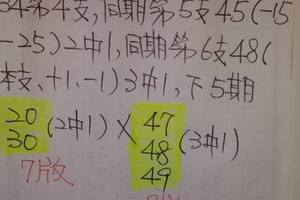 34第4支,同期第5支45(-15
-25)2中1,同期第6支48(
本支、+1、-1)3中1,下5期
20
30
(2中1)×
47
48
49
(3中1)
7版